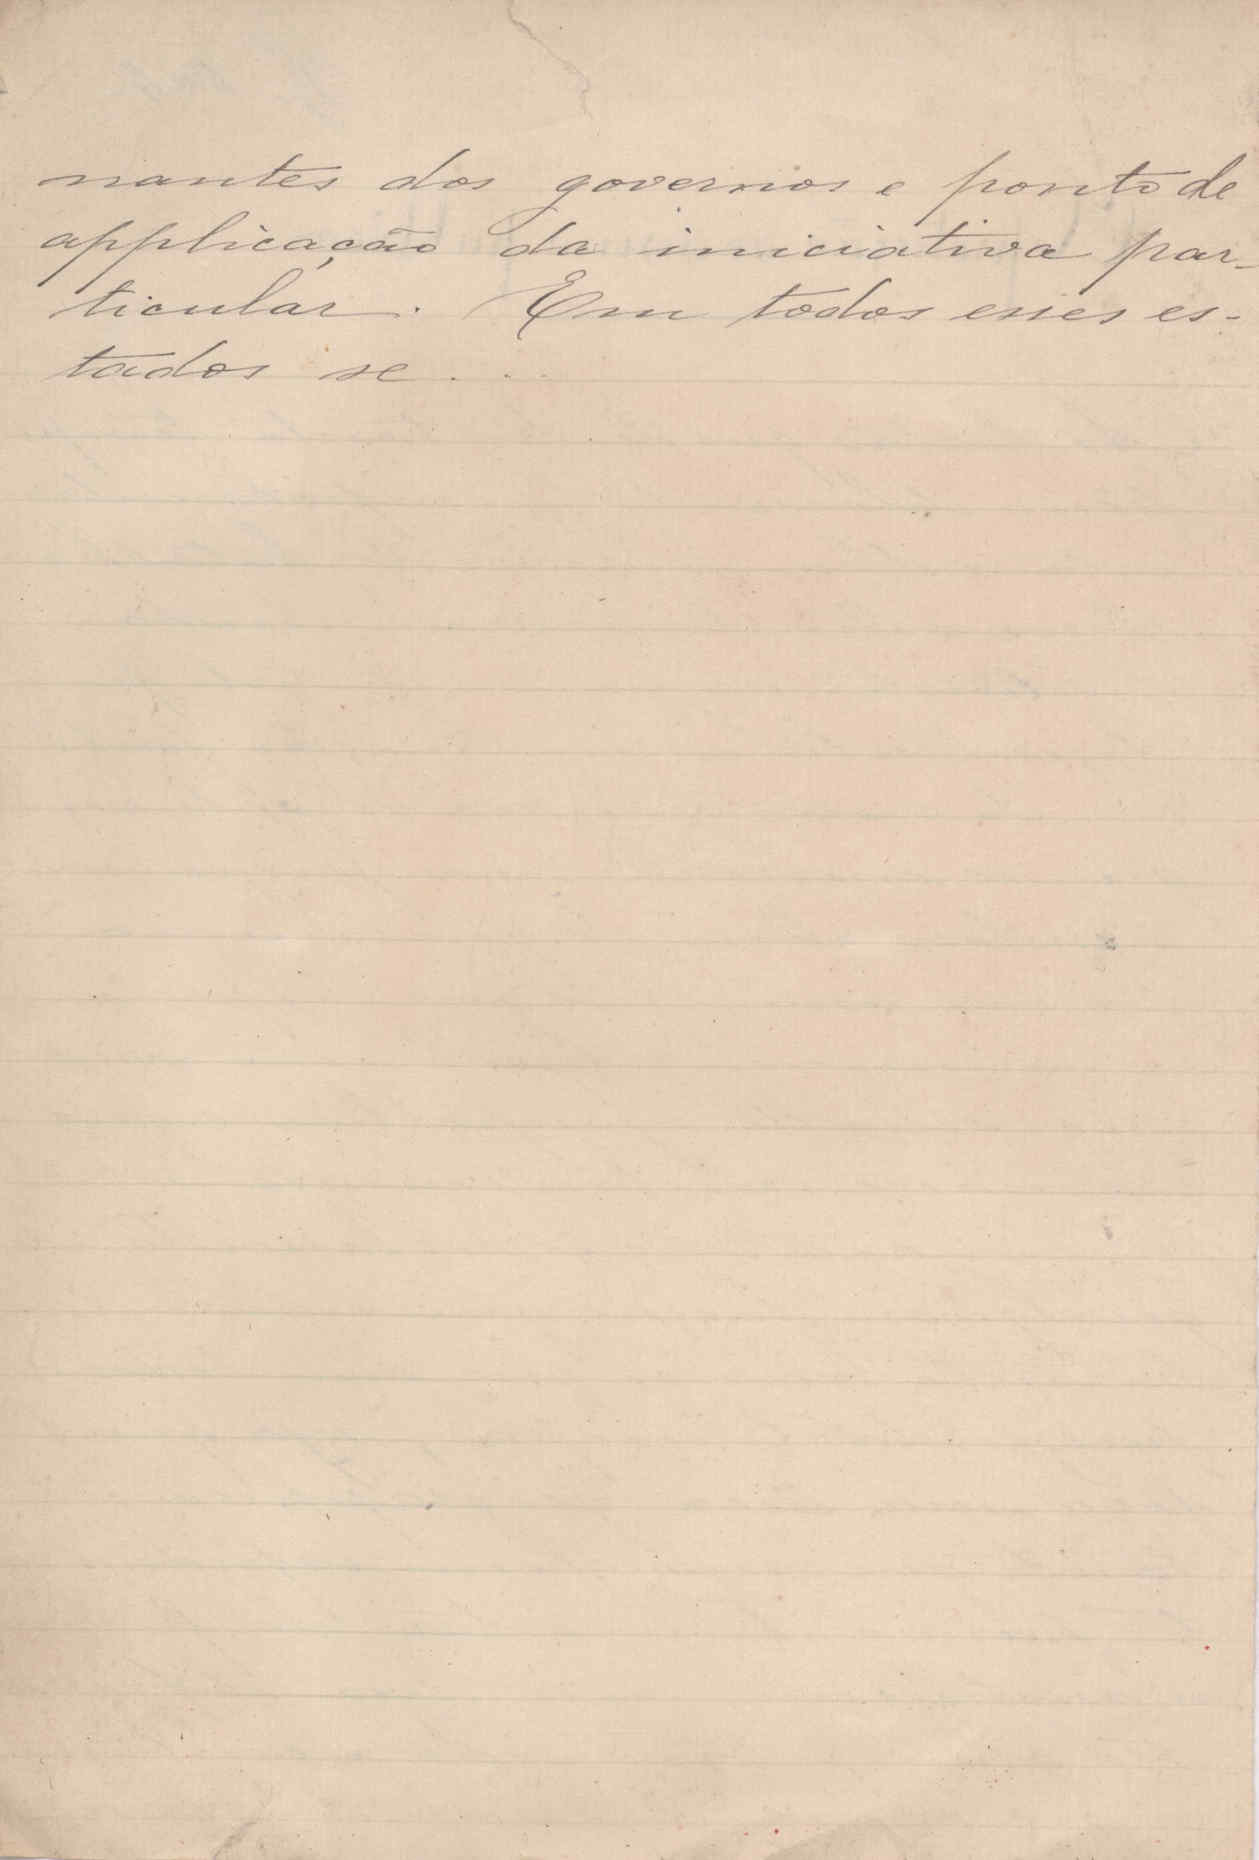 nantes dos governos e ponto de
applicação da iniciativa par-
ticular. Em todos esses es-
tados se...